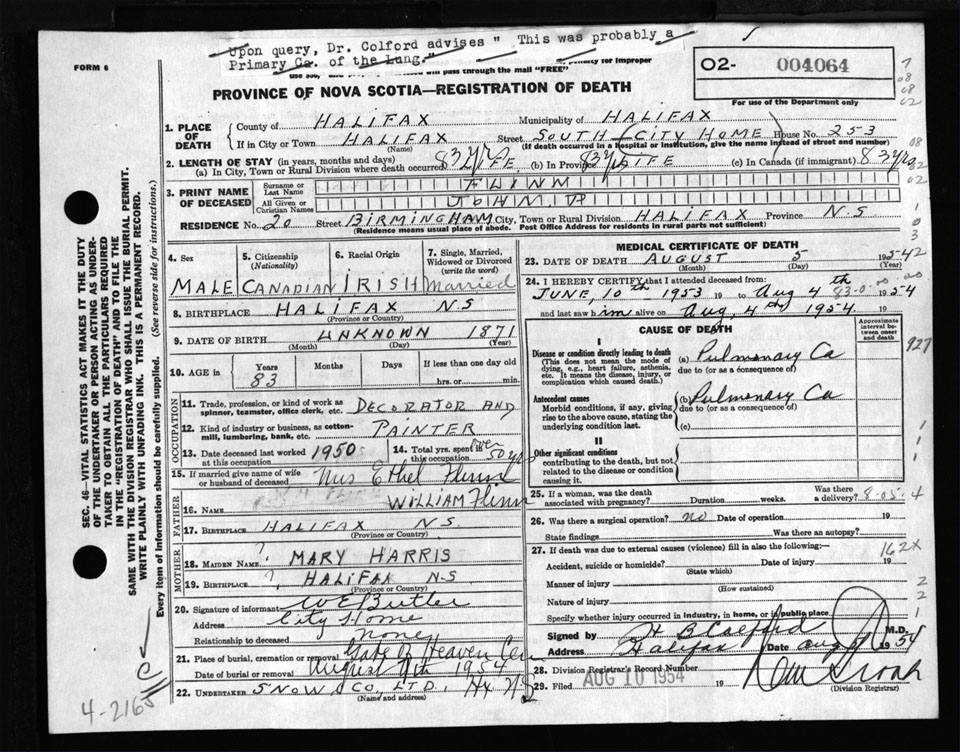 Upon query, Dr. Colford advises " This was probably a
Primary Ca. of the Lung."
FORM 6
will pass through the mail "FREE" penalty for improper
02- 004064
For use of the Department only
PROVINCE OF NOVA SCOTIA—REGISTRATION OF DEATH
1. PLACE OF DEATH
County of HALIFAX Municipality of HALIFAX
If in City or Town HALIFAX Street SOUTH - CITY HOME House No. 253
(Name) (If death occurred in a hospital or institution, give the name instead of street and number)
2. LENGTH OF STAY (in years, months and days)
(a) In City, Town or Rural Division where death occurred 83 yrs LIFE (b) In Province 83 yrs LIFE (c) In Canada (if immigrant) 83 yrs
3. PRINT NAME OF DECEASED
Surname or Last Name FLINN
All Given or Christian Names JOHN. P
RESIDENCE No. 20 Street BIRMINGHAM City, Town or Rural Division HALIFAX Province N.S
(Residence means usual place of abode. Post Office Address for residents in rural parts not sufficient)
4. Sex MALE
5. Citizenship (Nationality) CANADIAN
6. Racial Origin IRISH
7. Single, Married, Widowed or Divorced (write the word) Married
8. BIRTHPLACE HALIFAX N.S
(Province or Country)
9. DATE OF BIRTH UNKNOWN 1871
(Month) (Day) (Year)
10. AGE in Years 83 Months Days If less than one day old hrs. or min.
OCCUPATION
11. Trade, profession, or kind of work as spinner, teamster, office clerk, etc. DECORATOR AND
12. Kind of industry or business, as cotton-mill, lumbering, bank, etc. PAINTER
13. Date deceased last worked at this occupation 1950
14. Total yrs. spent in this occupation over 50 yrs
15. If married give name of wife or husband of deceased Mrs Ethel Flinn
FATHER
16. NAME WILLIAM Flinn
17. BIRTHPLACE HALIFAX N S
(Province or Country)
MOTHER
18. MAIDEN NAME ? MARY HARRIS
19. BIRTHPLACE ? HALIFAX N.S
(Province or Country)
20. Signature of informant W E Butler
Address City Home
Relationship to deceased none
21. Place of burial, cremation or removal Gate of Heaven Cem
Date of burial or removal August 7th 1954
22. UNDERTAKER SNOW & CO, LTD, Hx N.S
(Name and address)
MEDICAL CERTIFICATE OF DEATH
23. DATE OF DEATH AUGUST 5 1954
(Month) (Day) (Year)
24. I HEREBY CERTIFY that I attended deceased from
JUNE, 10th 1953 19 to Aug 4th 1954
and last saw him alive on Aug, 4th 1954 19
83-0-00
CAUSE OF DEATH
Approximate interval between onset and death
I
Disease or condition directly leading to death (a) Pulmonary Ca
(This does not mean the mode of dying, e.g., heart failure, asthenia, etc. It means the disease, injury, or complication which caused death.)
due to (or as a consequence of)
Antecedent causes (b) Pulmonary Ca
Morbid conditions, if any, giving rise to the above cause, stating the underlying condition last.
due to (or as a consequence of)
(c)
II
Other significant conditions
contributing to the death, but not related to the disease or condition causing it.
927
25. If a woman, was the death associated with pregnancy? Duration weeks. Was there a delivery? 8-05-4
26. Was there a surgical operation? no Date of operation 19
State findings Was there an autopsy?
27. If death was due to external causes (violence) fill in also the following:
162X
Accident, suicide or homicide? Date of injury 19
(State which)
Manner of injury
(How sustained)
Nature of injury
Specify whether injury occurred in industry, in home, or in public place
Signed by H B Colford M.D.
Address Halifax Date aug 1954
28. Division Registrar's Record Number
29. Filed AUG 10 1954 19
(Division Registrar)
SEC. 46—VITAL STATISTICS ACT MAKES IT THE DUTY
OF THE UNDERTAKER OR PERSON ACTING AS UNDERTAKER TO OBTAIN ALL THE PARTICULARS REQUIRED
IN THE "REGISTRATION OF DEATH" AND TO FILE THE
SAME WITH THE DIVISION REGISTRAR WHO SHALL ISSUE THE BURIAL PERMIT.
WRITE PLAINLY WITH UNFADING INK. THIS IS A PERMANENT RECORD.
Every item of information should be carefully supplied. (See reverse side for instructions.)
4-2165